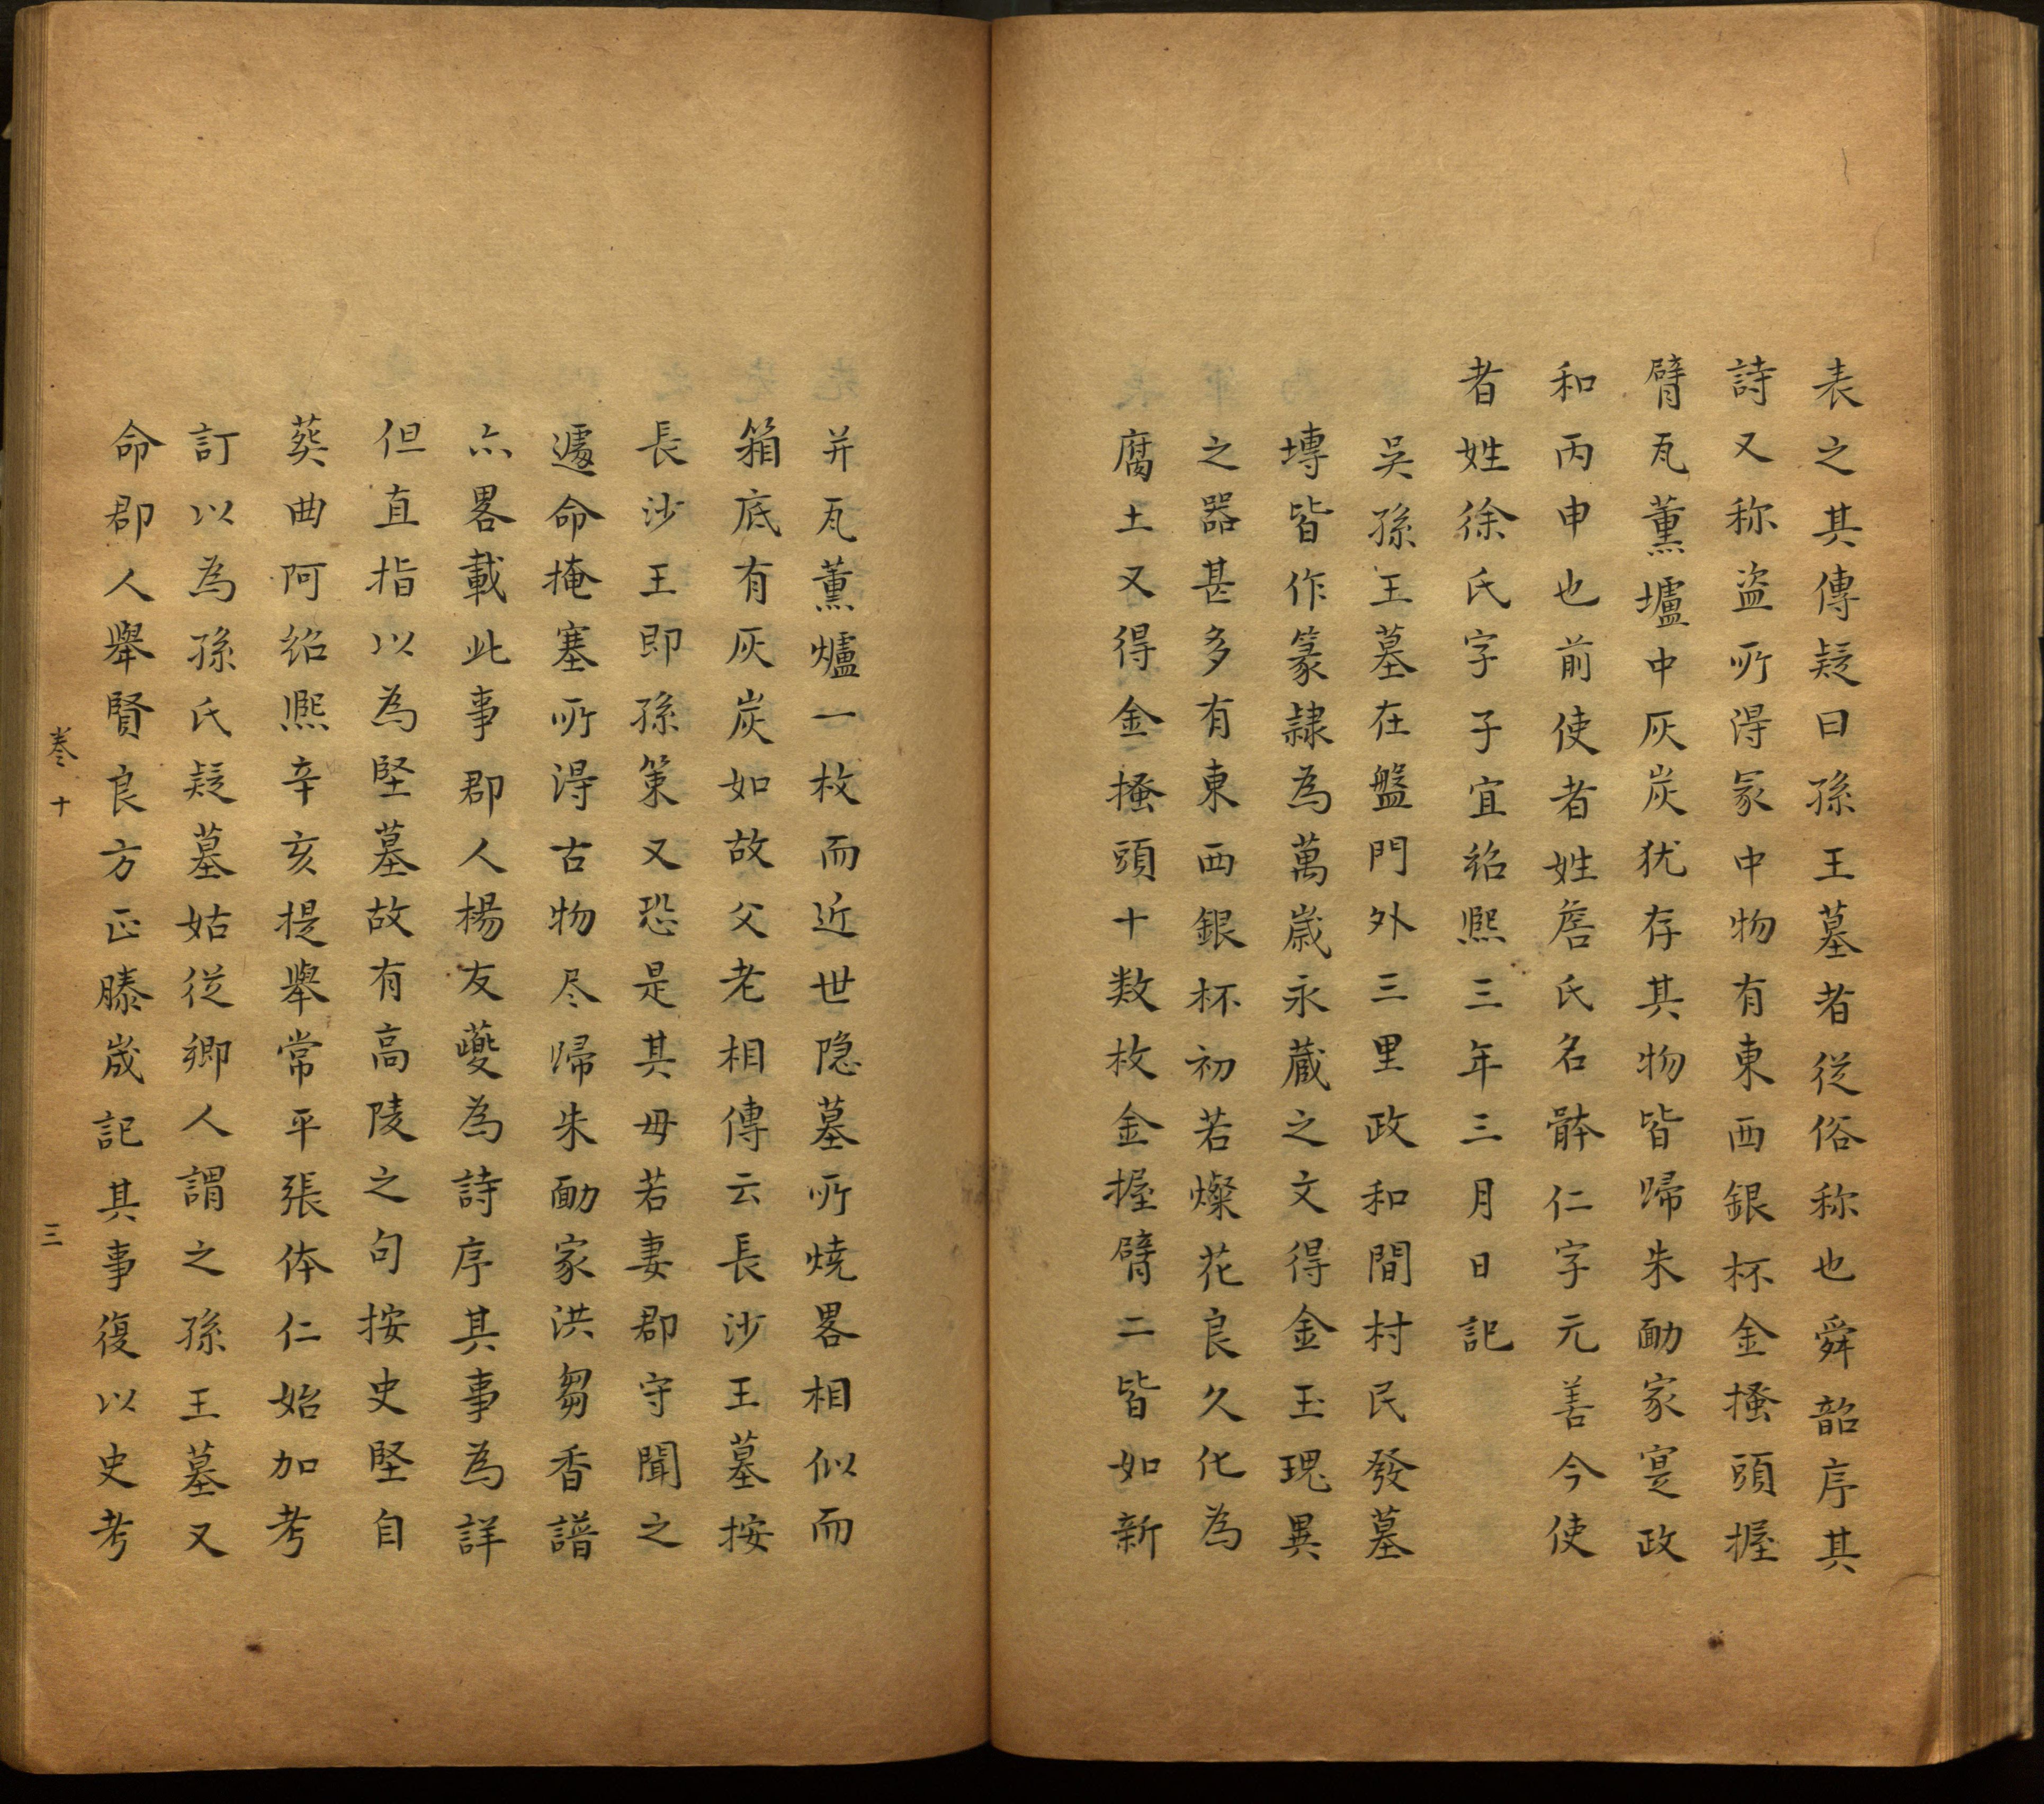 表之其傳疑曰孫王墓者從俗称也舜韶序其
詩又称盗所得冡中物有東西銀杯金搔頭握
臂瓦薫壚中灰炭犹存其物皆帰朱勔家寔政
和丙申也前使者姓詹氏名骵仁字元善今使
者姓徐氏字子宜紹熙三年三月日記
吳孫王墓在盤門外三里政和間村民發墓
塼皆作篆隷為萬歳永蔵之文得金玉瑰異
之器甚多有東西銀杯初若燦花良久化為
腐土又得金搔頭十数枚金握臂二皆如新
并瓦薫爐一枚而近世隐墓所焼畧相似而
箱底有灰炭如故父老相傳云長沙王墓按
長沙王即孫策又恐是其毋若妻郡守聞之
遽命掩塞所淂古物尽帰朱勔家洪芻香譜
亦畧載此事郡人楊友夔為詩序其事為詳
但直指以為堅墓故有高陵之句按史堅自
葬曲阿紹熙辛亥提舉常平張体仁始加考
訂以為孫氏疑墓姑従卿人謂之孫王墓又
命郡人舉賢良方正滕宬記其事復以史考
卷十
三